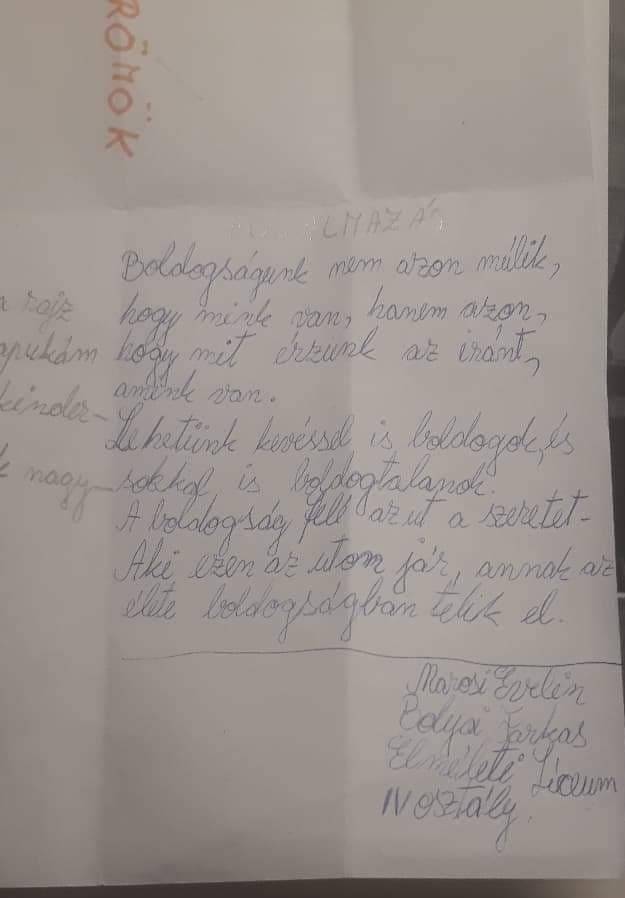 RÖMÖK
LMAZÁS
Boldogságunk nem azon múlik,
hogy mink van, hanem azon,
hogy mit érzünk az iránt,
amink van.
Lehetünk kevéssel is boldogok, és
sokkal is boldogtalanok.
A boldogság felé az ut a szeretet-
Aki ezen az uton jár, annak az
élete boldogságban telik el.
Marosi Evelin
Bolyai Farkas
Elméleti Líceum
IV osztály.
a rajz
apukám
kinder-
k nagy-